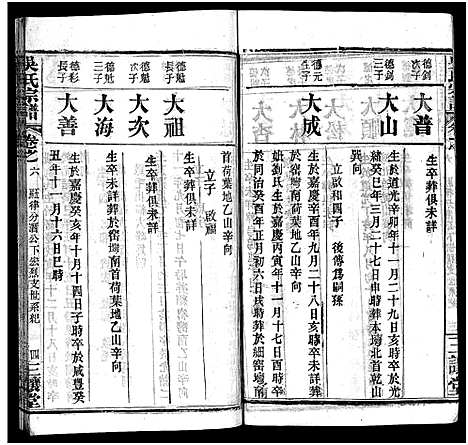 德剑長子
大普
生卒葬俱未詳
德剑次子
大山
生於道光辛卯年十一月二十九日亥時卒於光
緒癸巳年三月二十七日申時葬本塆北首乾山
巽向
立啟和四子
後傳為嗣孫
德元長子
大成
生於嘉慶辛酉年九月二十八日亥時卒葬未詳
姙劉氏生於嘉慶丙寅年十一月十七日酉時卒
於同治癸酉年正月初六日戌時葬於細窑塆南
首荷葉地乙山辛向
立子
啟福
德魁長子
大祖
生卒葬俱未詳
德魁次子
大次
生卒未詳葬於窑塆南首荷葉地乙山辛向
德魁三子
大海
生卒葬俱未詳
德彩長子
大善
生於嘉慶癸亥年十月十四日子時卒於咸豐癸
丑年十一月十六日巳時
吳氏宗譜
卷之六
四
三讓堂